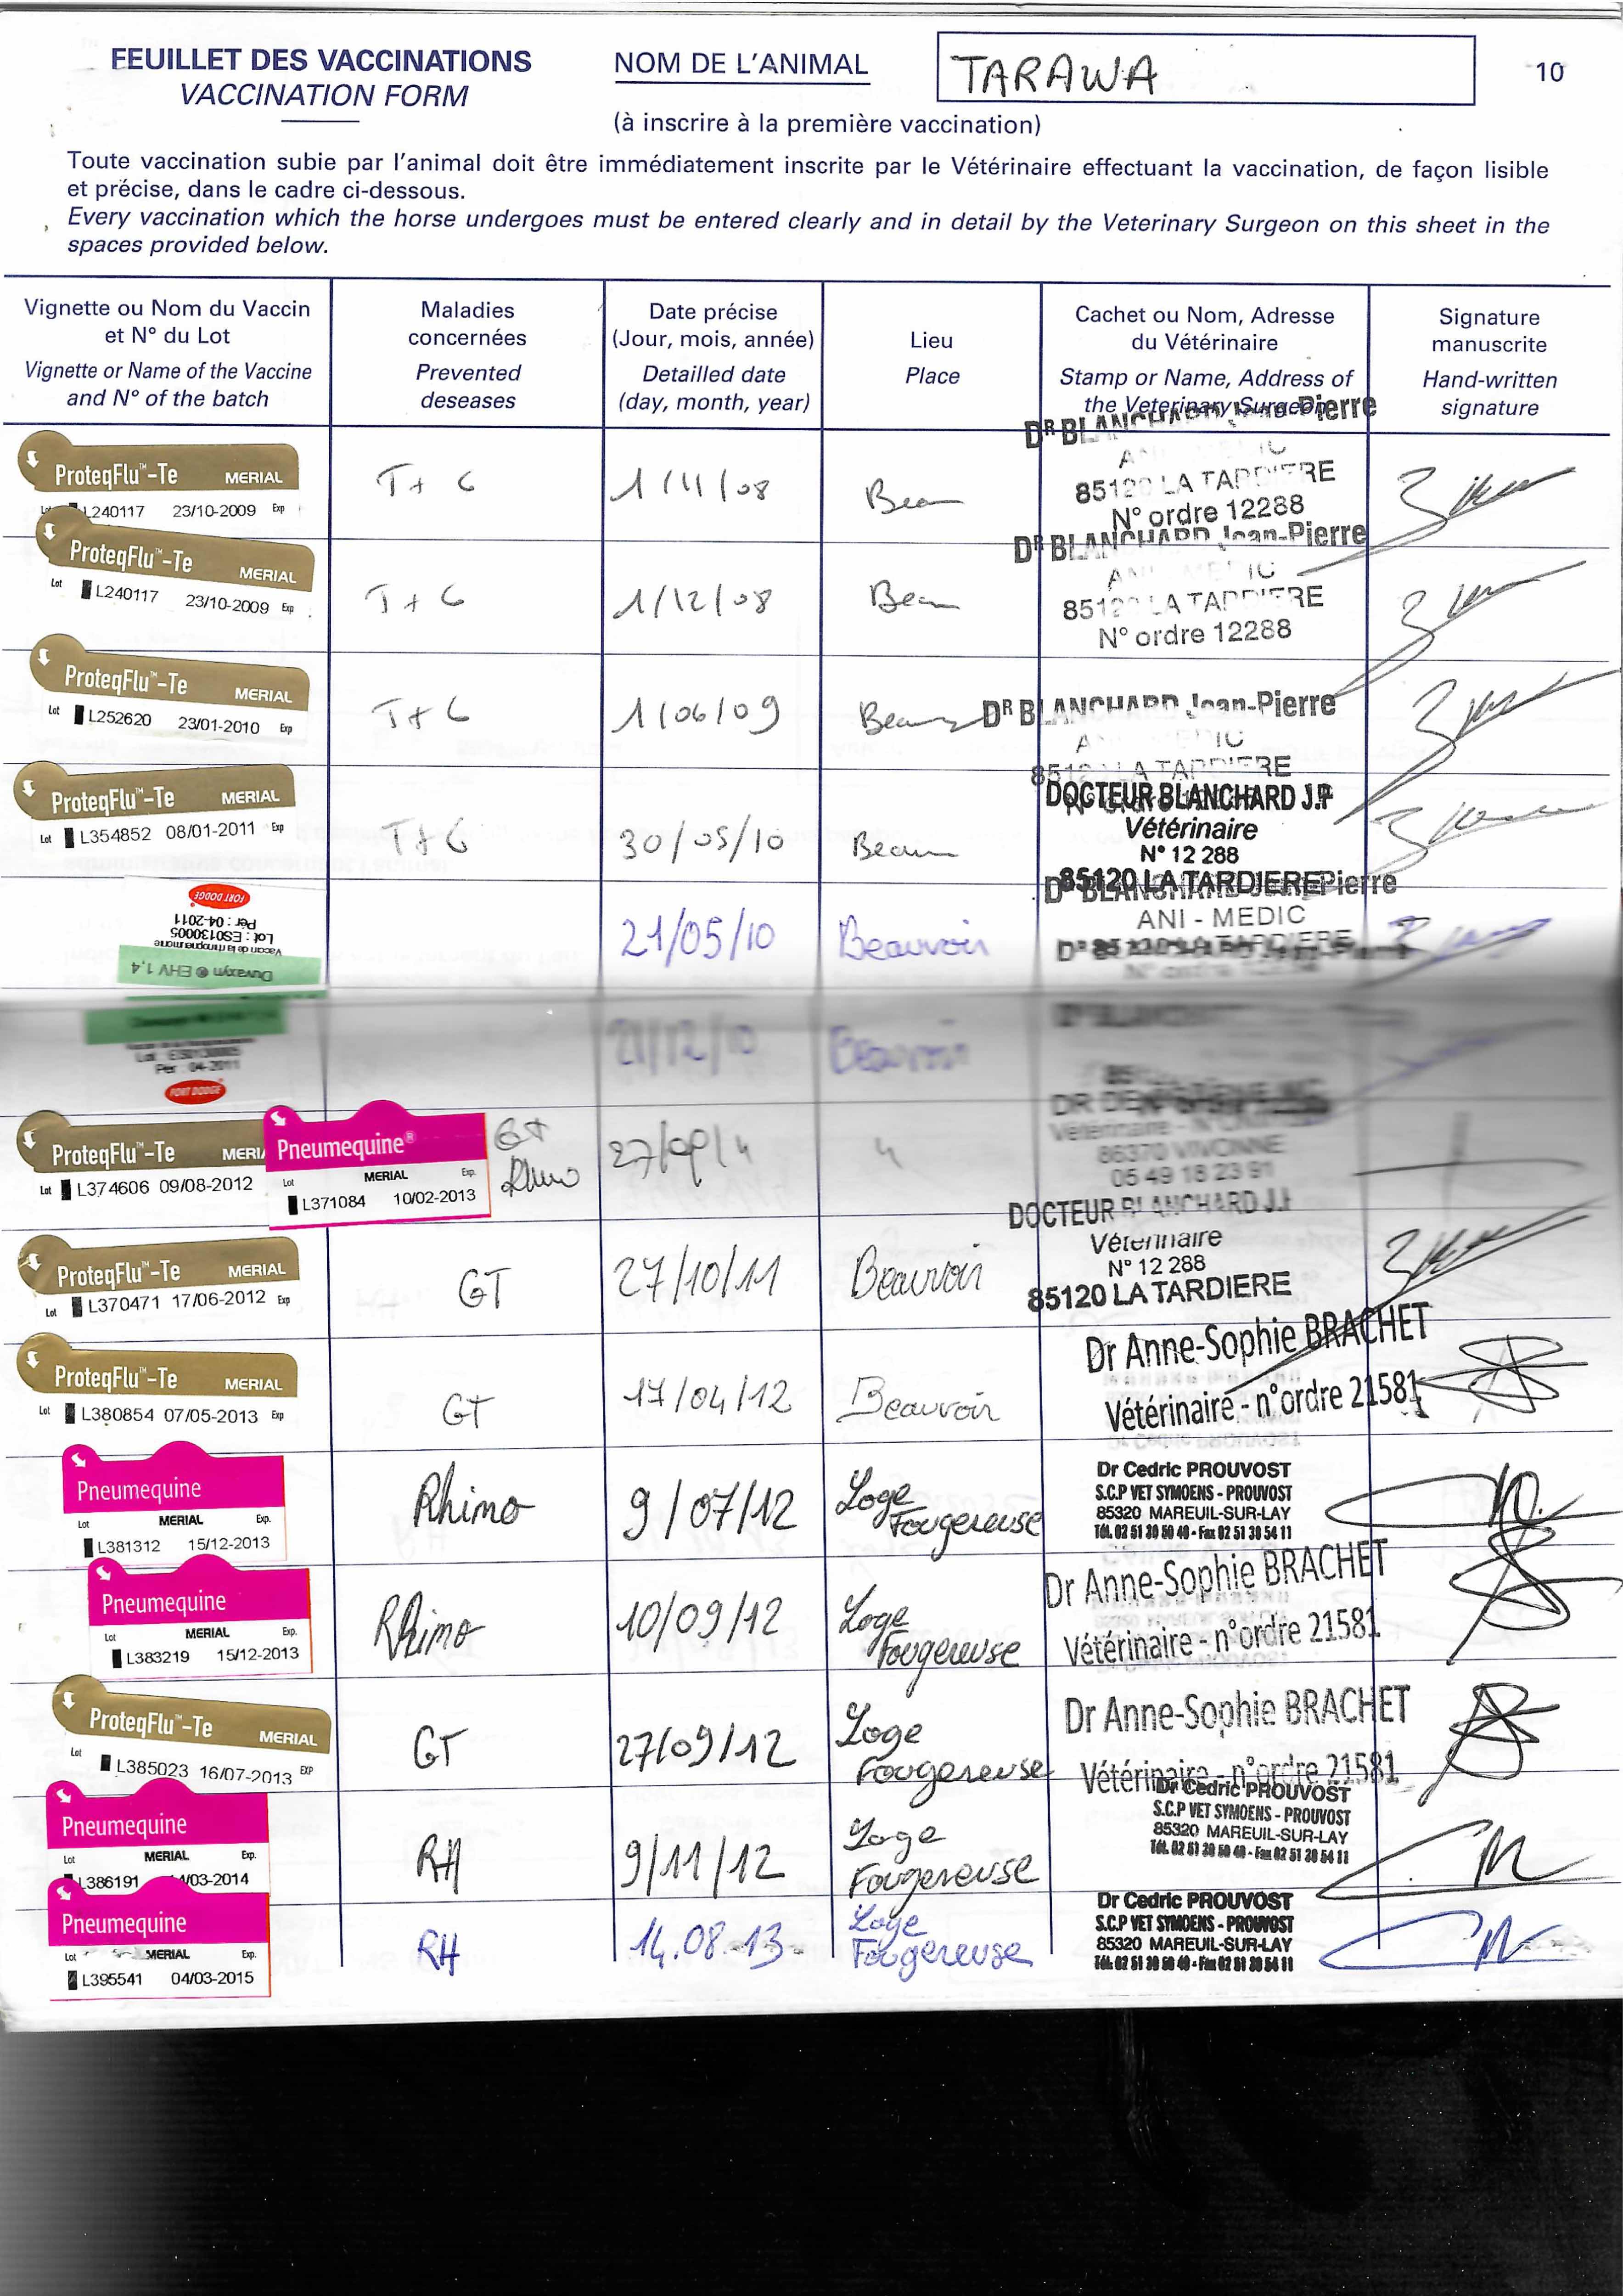 FEUILLET DES VACCINATIONS
VACCINATION FORM
NOM DE L'ANIMAL
TARAWA
10
(à inscrire à la première vaccination)
Toute vaccination subie par l'animal doit être immédiatement inscrite par le Vétérinaire effectuant la vaccination, de façon lisible
et précise, dans le cadre ci-dessous.
Every vaccination which the horse undergoes must be entered clearly and in detail by the Veterinary Surgeon on this sheet in the
spaces provided below.
Vignette ou Nom du Vaccin
et N° du Lot
Vignette or Name of the Vaccine
and N° of the batch
Maladies
concernées
Prevented
deseases
Date précise
(Jour, mois, année)
Detailled date
(day, month, year)
Lieu
Place
Cachet ou Nom, Adresse
du Vétérinaire
Stamp or Name, Address of
the Veterinary Surgeon
Signature
manuscrite
Hand-written
signature
ProteqFlu™-Te MERIAL
L240117 23/10-2009 Exp
T + G
1/11/08
Beau
DR BLANCHARD Jean-Pierre
ANI-MEDIC
85120 LA TARDIERE
N° ordre 12288
ProteqFlu™-Te MERIAL
Lot L240117 23/10-2009 Exp
T + G
1/12/08
Beau
DR BLANCHARD Jean-Pierre
ANI-MEDIC
85120 LA TARDIERE
N° ordre 12288
ProteqFlu™-Te MERIAL
Lot L252620 23/01-2010 Exp
T + G
1/06/09
DR BLANCHARD Jean-Pierre
ANI-MEDIC
85120 LA TARDIERE
ProteqFlu™-Te MERIAL
Lot L354852 08/01-2011 Exp
T+G
30/05/10
Beau
DOCTEUR BLANCHARD J.P
Vétérinaire
N° 12 288
85120 LA TARDIERE
Duvaxyn ® EHV 1,4
Vaccin de la rhinopneumonie
Lot : ES0130005
Per : 04-2011
FORT DODGE
21/05/10
Beauvoir
DR BLANCHARD Jean-Pierre
ANI - MEDIC
85120 LA TARDIERE
Per : 04-2011
FORT DODGE
21/12/10
Beauvoir
DR BLANCHARD
ProteqFlu™-Te MERIAL
Lot L374606 09/08-2012
Pneumequine®
Lot MERIAL Exp.
L371084 10/02-2013
GT
Rhino
86370 VIVONNE
05 49 18 23 91
ProteqFlu™-Te MERIAL
Lot L370471 17/06-2012 Exp
GT
27/10/11
Beauvoir
DOCTEUR BLANCHARD J.P
Vétérinaire
N° 12 288
85120 LA TARDIERE
ProteqFlu™-Te MERIAL
Lot L380854 07/05-2013 Exp
GT
17/04/12
Beauvoir
Dr Anne-Sophie BRACHET
Vétérinaire - n°ordre 21581
Pneumequine
Lot MERIAL Exp.
L381312 15/12-2013
Rhino
9/07/12
Loge
Fougereuse
Dr Cedric PROUVOST
S.C.P VET SYMOENS - PROUVOST
85320 MAREUIL-SUR-LAY
Tél. 02 51 30 50 40 - Fax 02 51 30 54 11
Pneumequine
Lot MERIAL Exp.
L383219 15/12-2013
Rhino
10/09/12
Loge
Fougereuse
Dr Anne-Sophie BRACHET
Vétérinaire - n°ordre 21581
ProteqFlu™-Te MERIAL
Lot L385023 16/07-2013 EXP
GT
27/09/12
Loge
Fougereuse
Dr Anne-Sophie BRACHET
Vétérinaire - n°ordre 21581
Pneumequine
Lot MERIAL Exp.
L386191 /03-2014
RH
9/11/12
Loge
Fougereuse
Dr Cedric PROUVOST
S.C.P VET SYMOENS - PROUVOST
85320 MAREUIL-SUR-LAY
Tél. 02 51 30 50 40 - Fax 02 51 30 54 11
Pneumequine
Lot MERIAL Exp.
L395541 04/03-2015
RH
14.08.13
Loge
Fougereuse
Dr Cedric PROUVOST
S.C.P VET SYMOENS - PROUVOST
85320 MAREUIL-SUR-LAY
Tél. 02 51 30 50 40 - Fax 02 51 30 54 11